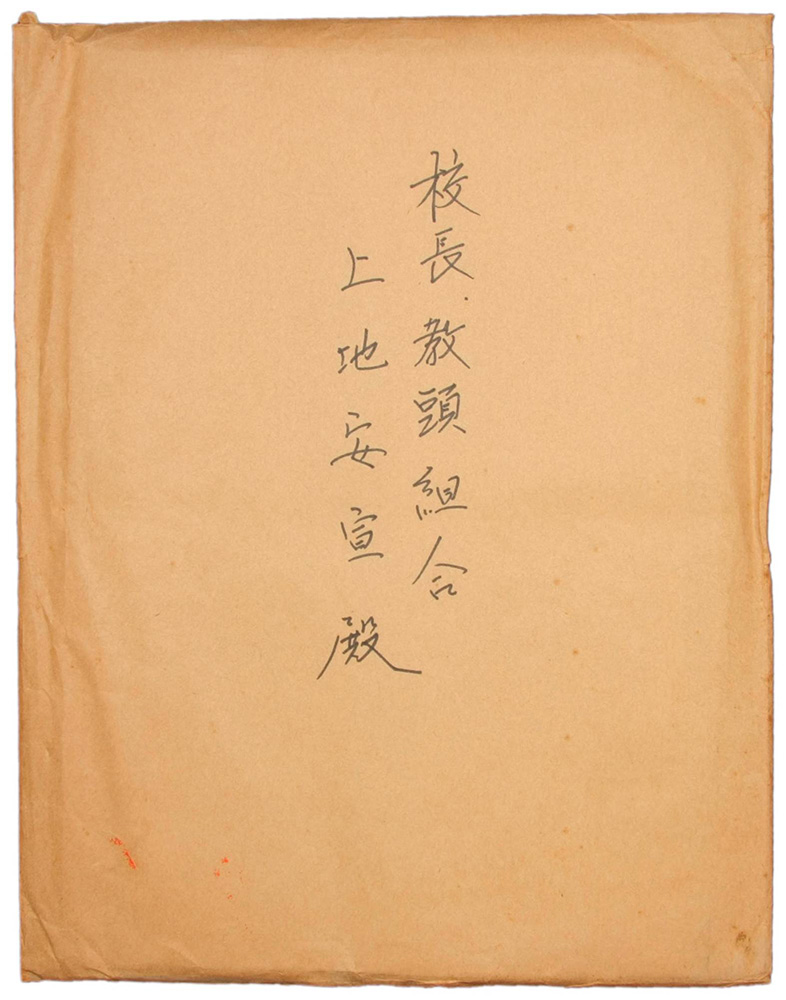 校長.教頭組合
上地安宣殿